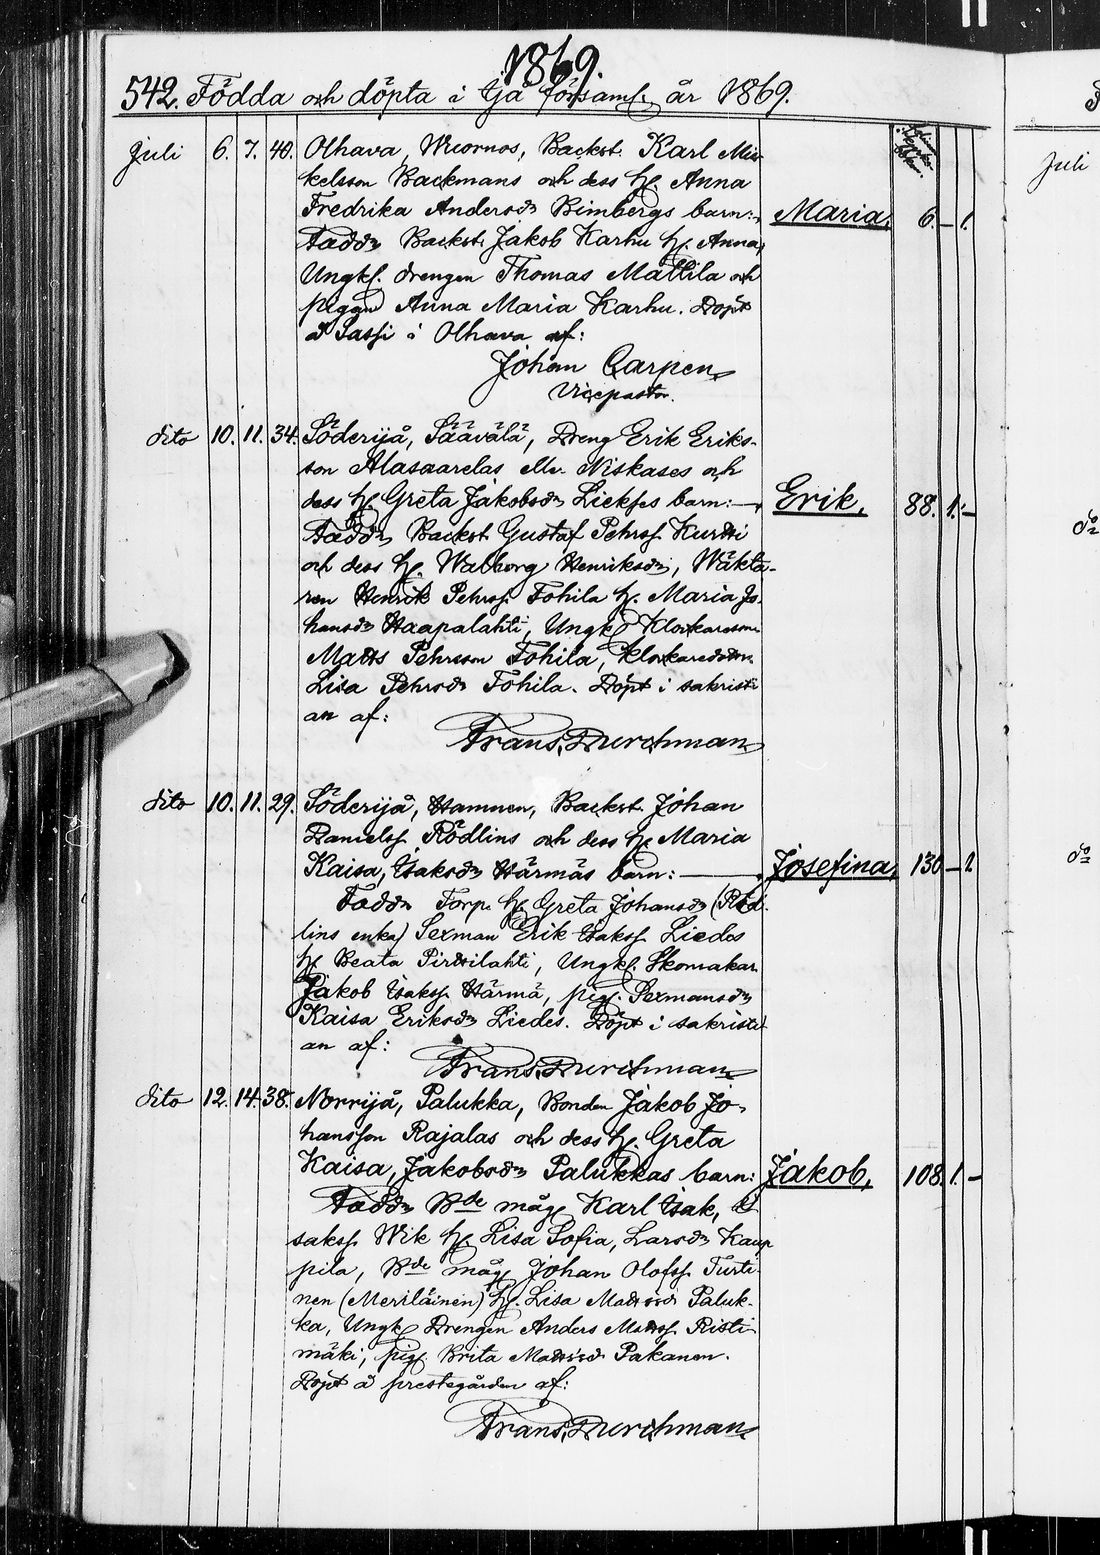 1869.
542. Födda och döpta i Ijå församl. år 1869.
Juli 6. 7. 40. Olhava, Wuornos, Backst. Karl Mic-
kelsson Backmans och dess h. Anna
Fredrika Andersdr Bimbergs barn: Maria, 6. – 1.
Fadd: Backst. Jakob Karhu h. Anna,
Ungkl. drengen Thomas Mattila och
pigan Anna Maria Karhu. Döpt
å Sassi i Olhava af:
Johan Carpen
Vicepastor.
dito 10. 11. 34. Söderijå, Säävälä, Dreng Erik Eriks-
son Alasaarelas ell. Niskases och
dess h. Greta Jakobsdr Liekses barn: Erik, 88. 1. –
Fadd: Backst. Gustaf Pehrss. Kurtti
och dess h. Walborg Henriksdr, Wäkta-
ren Henrik Pehrss. Tohila h. Maria Jo-
hansdr Haapalahti, Ungk. Klockareson
Matts Pehrsson Tohila, Klockaredottr.
Lisa Pehrsdr Tohila. Döpt i sakristi
an af:
Frans Durchman
dito 10. 11. 29. Söderijå, Hamnen, Backst. Johan
Danielss. Rödlins och dess h. Maria
Kaisa, Isaksdr Härmäs barn: Josefina, 130 – 1
Fadd: Torp. h. Greta Johansdr (Röd-
lins enka) Sexman Erik Isakss. Liedes
h. Beata Pirttilahti, Ungk. Skomakar
Jakob Isakss. Härmä, pig. Sexmansdr
Kaisa Eriksdr Liedes. Döpt i sakristi
an af:
Frans Durchman
dito 12. 14. 38. Norrijå, Palukka, Bonden Jakob Jo-
hansson Rajalas och dess h. Greta
Kaisa, Jakobsdr Palukkas barn: Jakob, 108. 1. –
Fadd: Bde måg Karl Isak, I
sakss. Wik h. Lisa Sofia, Larsdr Kaup
pila, Bde måg Johan Olofss. Turti-
nen (Meriläinen) h. Lisa Mattsdr Paluk-
ka, Ungk. Drengen Anders Matss. Risti
mäki, pig. Brita Mattsdr Pakanen.
Döpt å prestegården af:
Frans Durchman
Juli
do
do